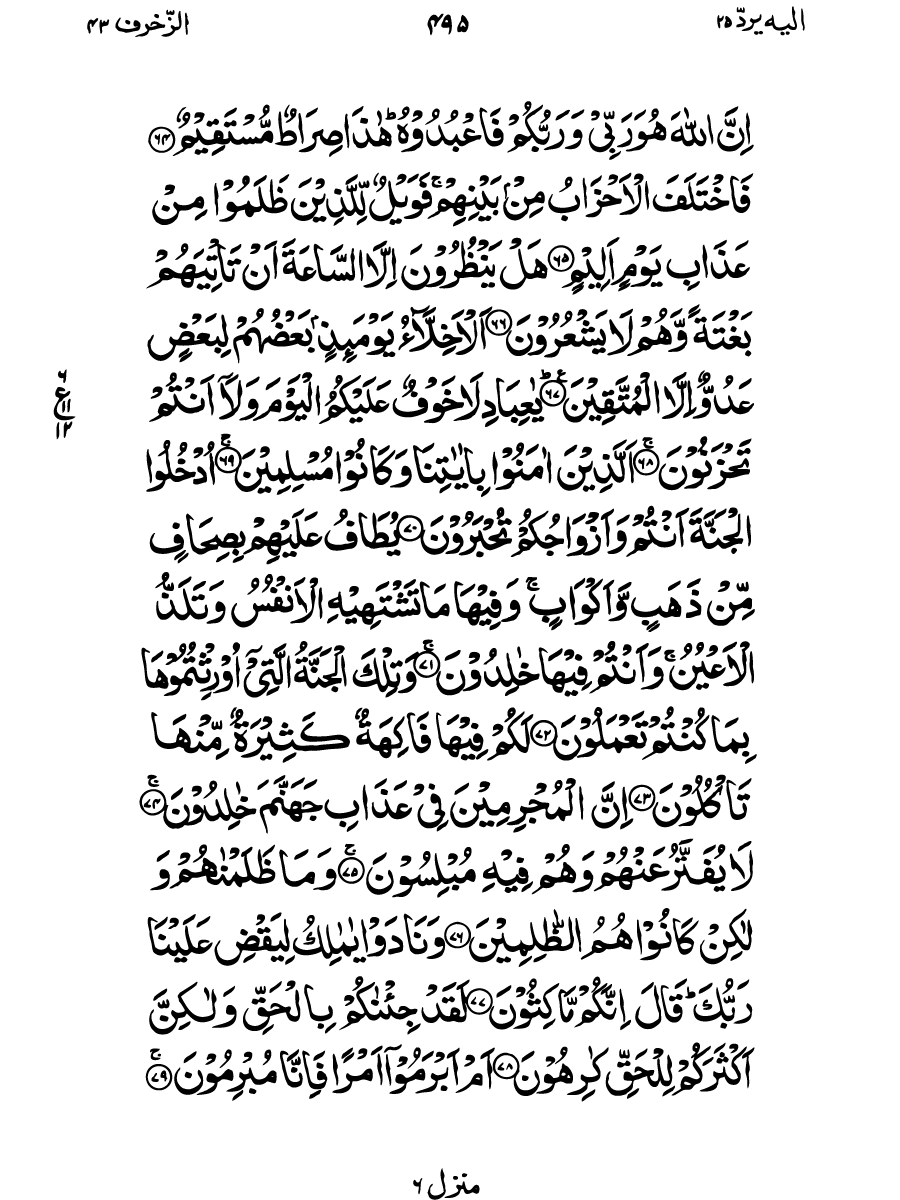 اليه يردّ ٢٥
٤٩٥
الزّخرف ٤٣
اِنَّ اللّٰهَ هُوَ رَبِّىْ وَ رَبُّكُمْ فَاعْبُدُوْهُ ؕ هٰذَا صِرَاطٌ مُّسْتَقِيْمٌ ﴿٦٤﴾
فَاخْتَلَفَ الْاَحْزَابُ مِنْۢ بَيْنِهِمْ ۚ فَوَيْلٌ لِّلَّذِيْنَ ظَلَمُوْا مِنْ
عَذَابِ يَوْمٍ اَلِيْمٍ ﴿٦٥﴾ هَلْ يَنْظُرُوْنَ اِلَّا السَّاعَةَ اَنْ تَاْتِيَهُمْ
بَغْتَةً وَّ هُمْ لَا يَشْعُرُوْنَ ﴿٦٦﴾ اَلْاَخِلَّآءُ يَوْمَىِٕذٍۭ بَعْضُهُمْ لِبَعْضٍ
عَدُوٌّ اِلَّا الْمُتَّقِيْنَ ؕ ﴿٦٧﴾ يٰعِبَادِ لَا خَوْفٌ عَلَيْكُمُ الْيَوْمَ وَ لَاۤ اَنْتُمْ
تَحْزَنُوْنَ ۚ ﴿٦٨﴾ اَلَّذِيْنَ اٰمَنُوْا بِاٰيٰتِنَا وَ كَانُوْا مُسْلِمِيْنَ ۚ ﴿٦٩﴾ اُدْخُلُوا
الْجَنَّةَ اَنْتُمْ وَ اَزْوَاجُكُمْ تُحْبَرُوْنَ ﴿٧٠﴾ يُطَافُ عَلَيْهِمْ بِصِحَافٍ
مِّنْ ذَهَبٍ وَّ اَكْوَابٍ ۚ وَ فِيْهَا مَا تَشْتَهِيْهِ الْاَنْفُسُ وَ تَلَذُّ
الْاَعْيُنُ ۚ وَ اَنْتُمْ فِيْهَا خٰلِدُوْنَ ۚ ﴿٧١﴾ وَ تِلْكَ الْجَنَّةُ الَّتِىْۤ اُوْرِثْتُمُوْهَا
بِمَا كُنْتُمْ تَعْمَلُوْنَ ﴿٧٢﴾ لَكُمْ فِيْهَا فَاكِهَةٌ كَثِيْرَةٌ مِّنْهَا
تَاْكُلُوْنَ ﴿٧٣﴾ اِنَّ الْمُجْرِمِيْنَ فِىْ عَذَابِ جَهَنَّمَ خٰلِدُوْنَ ۚ ﴿٧٤﴾
لَا يُفَتَّرُ عَنْهُمْ وَ هُمْ فِيْهِ مُبْلِسُوْنَ ۚ ﴿٧٥﴾ وَ مَا ظَلَمْنٰهُمْ وَ
لٰكِنْ كَانُوْا هُمُ الظّٰلِمِيْنَ ﴿٧٦﴾ وَ نَادَوْا يٰمٰلِكُ لِيَقْضِ عَلَيْنَا
رَبُّكَ ؕ قَالَ اِنَّكُمْ مّٰكِثُوْنَ ﴿٧٧﴾ لَقَدْ جِئْنٰكُمْ بِالْحَقِّ وَ لٰكِنَّ
اَكْثَرَكُمْ لِلْحَقِّ كٰرِهُوْنَ ﴿٧٨﴾ اَمْ اَبْرَمُوْۤا اَمْرًا فَاِنَّا مُبْرِمُوْنَ ۚ ﴿٧٩﴾
٦
ع ١١
١٢
منزل ٦